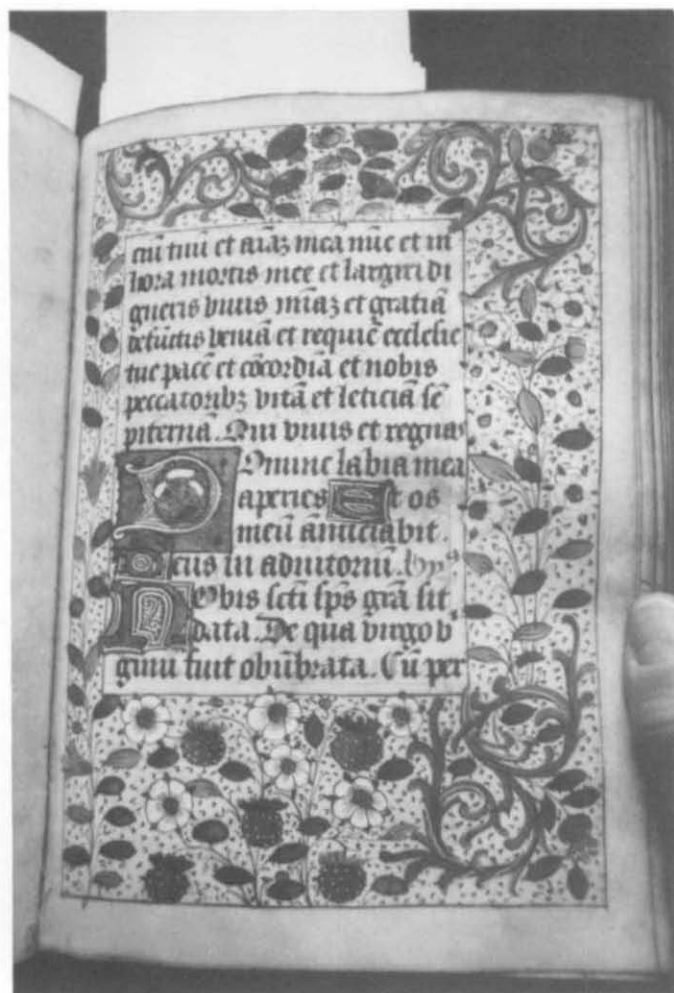 ciū tuū et aīaʒ mea nūc et in
hora mortis mee et largiri di
gneris viuis mīaʒ et gratiā
defūctis veniā et requiē ecclesie
tue pacē et cōcordiā et nobis
peccatoribʒ vitā et leticiā sē
piternā. Qui viuis et regnas
Domine labia mea
aperies Et os
meū ānūciabit.
Deus in adiutoriū. hyᵒ
Nobis sctī sps grā sit
data. De qua virgo v̄
ginū fuit obūbrata. Cū per